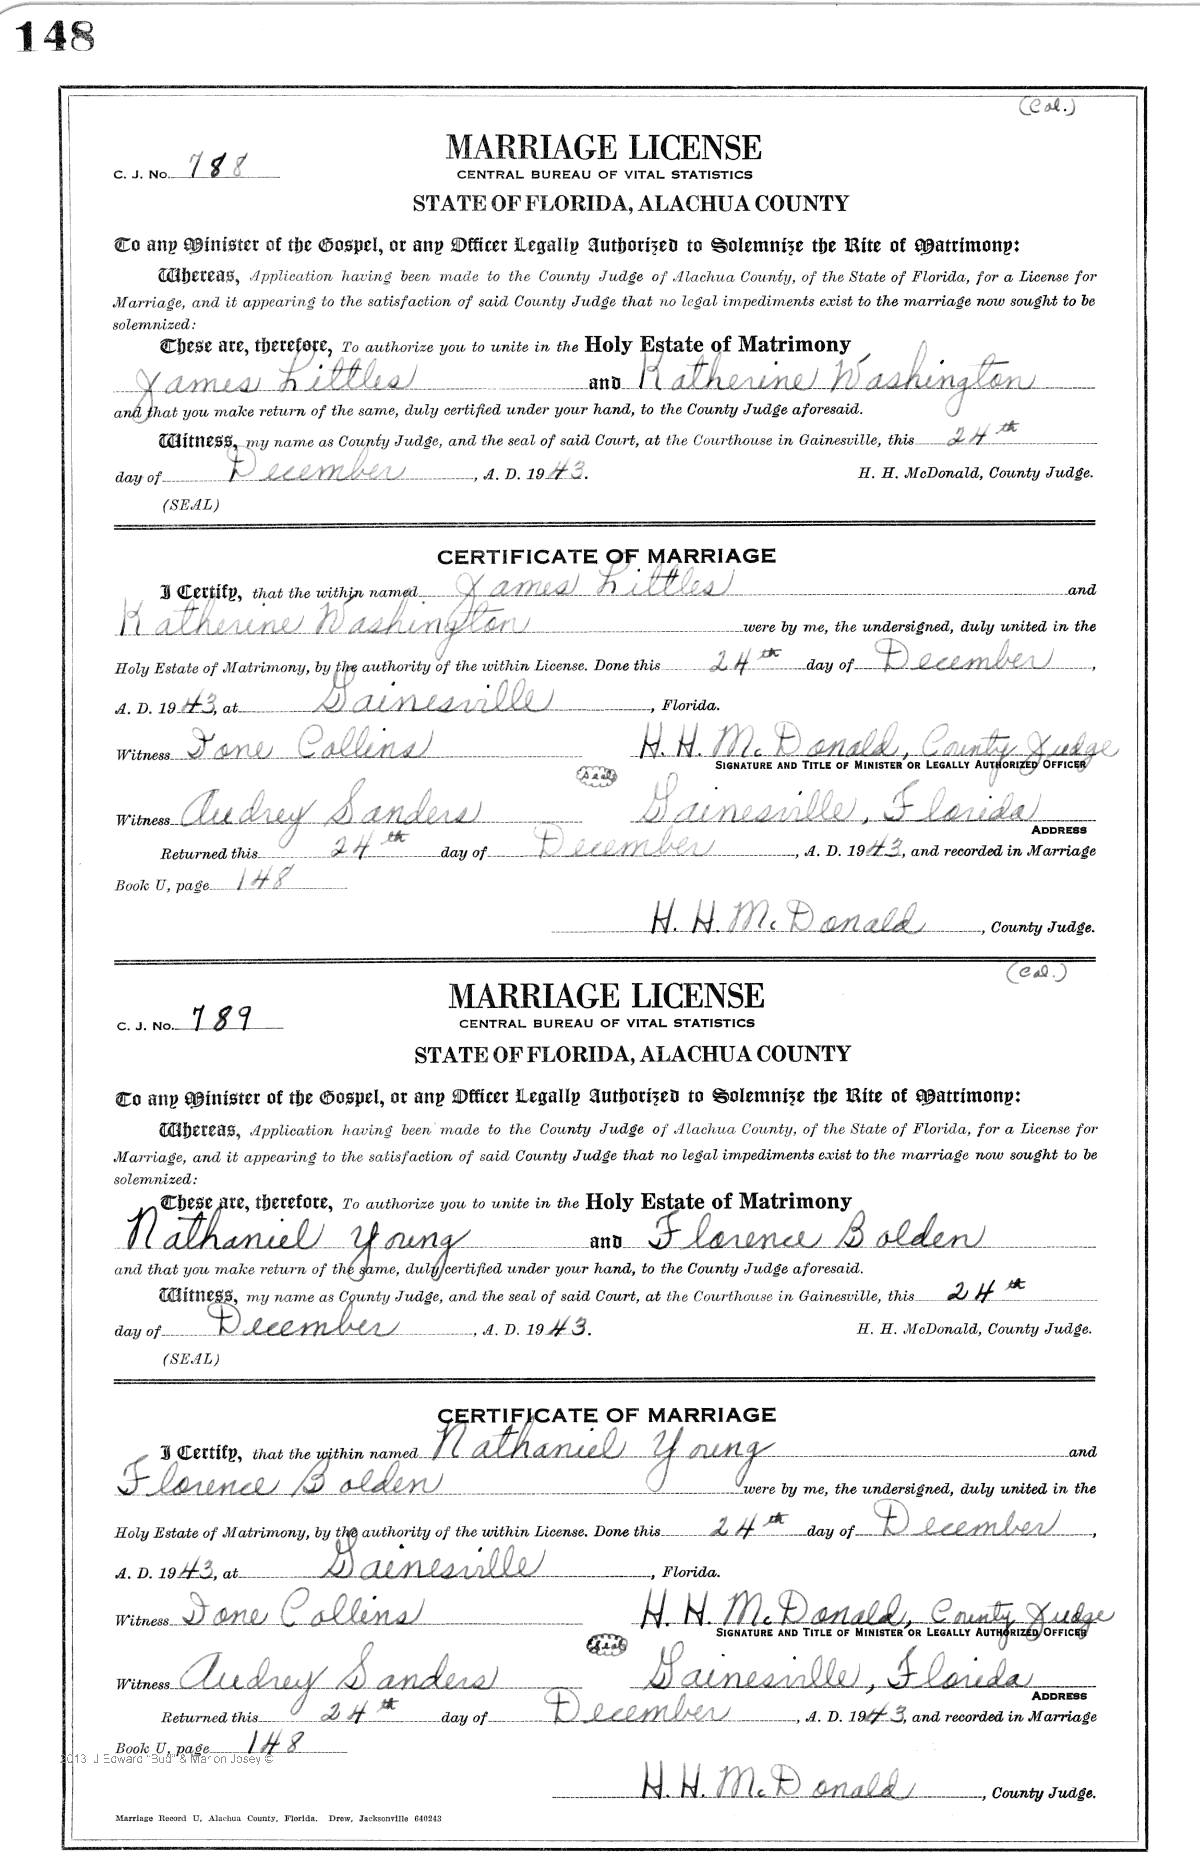 148
(Col.)
MARRIAGE LICENSE
C. J. No. 788
CENTRAL BUREAU OF VITAL STATISTICS
STATE OF FLORIDA, ALACHUA COUNTY
To any Minister of the Gospel, or any Officer Legally Authorized to Solemnize the Rite of Matrimony:
Whereas, Application having been made to the County Judge of Alachua County, of the State of Florida, for a License for
Marriage, and it appearing to the satisfaction of said County Judge that no legal impediments exist to the marriage now sought to be
solemnized:
These are, therefore, To authorize you to unite in the Holy Estate of Matrimony
James Littles and Katherine Washington
and that you make return of the same, duly certified under your hand, to the County Judge aforesaid.
Witness, my name as County Judge, and the seal of said Court, at the Courthouse in Gainesville, this 24th
day of December, A. D. 1943. H. H. McDonald, County Judge.
(SEAL)
CERTIFICATE OF MARRIAGE
I Certify, that the within named James Littles and
Katherine Washington were by me, the undersigned, duly united in the
Holy Estate of Matrimony, by the authority of the within License. Done this 24th day of December,
A. D. 1943, at Gainesville, Florida.
Witness Ione Collins H. H. McDonald, County Judge
SIGNATURE AND TITLE OF MINISTER OR LEGALLY AUTHORIZED OFFICER
Seal
Witness Audrey Sanders Gainesville, Florida
ADDRESS
Returned this 24th day of December, A. D. 1943, and recorded in Marriage
Book U, page 148
H. H. McDonald, County Judge.
(Col.)
MARRIAGE LICENSE
C. J. No. 789
CENTRAL BUREAU OF VITAL STATISTICS
STATE OF FLORIDA, ALACHUA COUNTY
To any Minister of the Gospel, or any Officer Legally Authorized to Solemnize the Rite of Matrimony:
Whereas, Application having been made to the County Judge of Alachua County, of the State of Florida, for a License for
Marriage, and it appearing to the satisfaction of said County Judge that no legal impediments exist to the marriage now sought to be
solemnized:
These are, therefore, To authorize you to unite in the Holy Estate of Matrimony
Nathaniel Young and Florence Bolden
and that you make return of the same, duly certified under your hand, to the County Judge aforesaid.
Witness, my name as County Judge, and the seal of said Court, at the Courthouse in Gainesville, this 24th
day of December, A. D. 1943. H. H. McDonald, County Judge.
(SEAL)
CERTIFICATE OF MARRIAGE
I Certify, that the within named Nathaniel Young and
Florence Bolden were by me, the undersigned, duly united in the
Holy Estate of Matrimony, by the authority of the within License. Done this 24th day of December,
A. D. 1943, at Gainesville, Florida.
Witness Ione Collins H. H. McDonald, County Judge
SIGNATURE AND TITLE OF MINISTER OR LEGALLY AUTHORIZED OFFICER
Seal
Witness Audrey Sanders Gainesville, Florida
ADDRESS
Returned this 24th day of December, A. D. 1943, and recorded in Marriage
Book U, page 148
2013 J Edward "Bud" & Marion Josey ©
H. H. McDonald, County Judge.
Marriage Record U, Alachua County, Florida. Drew, Jacksonville 640243